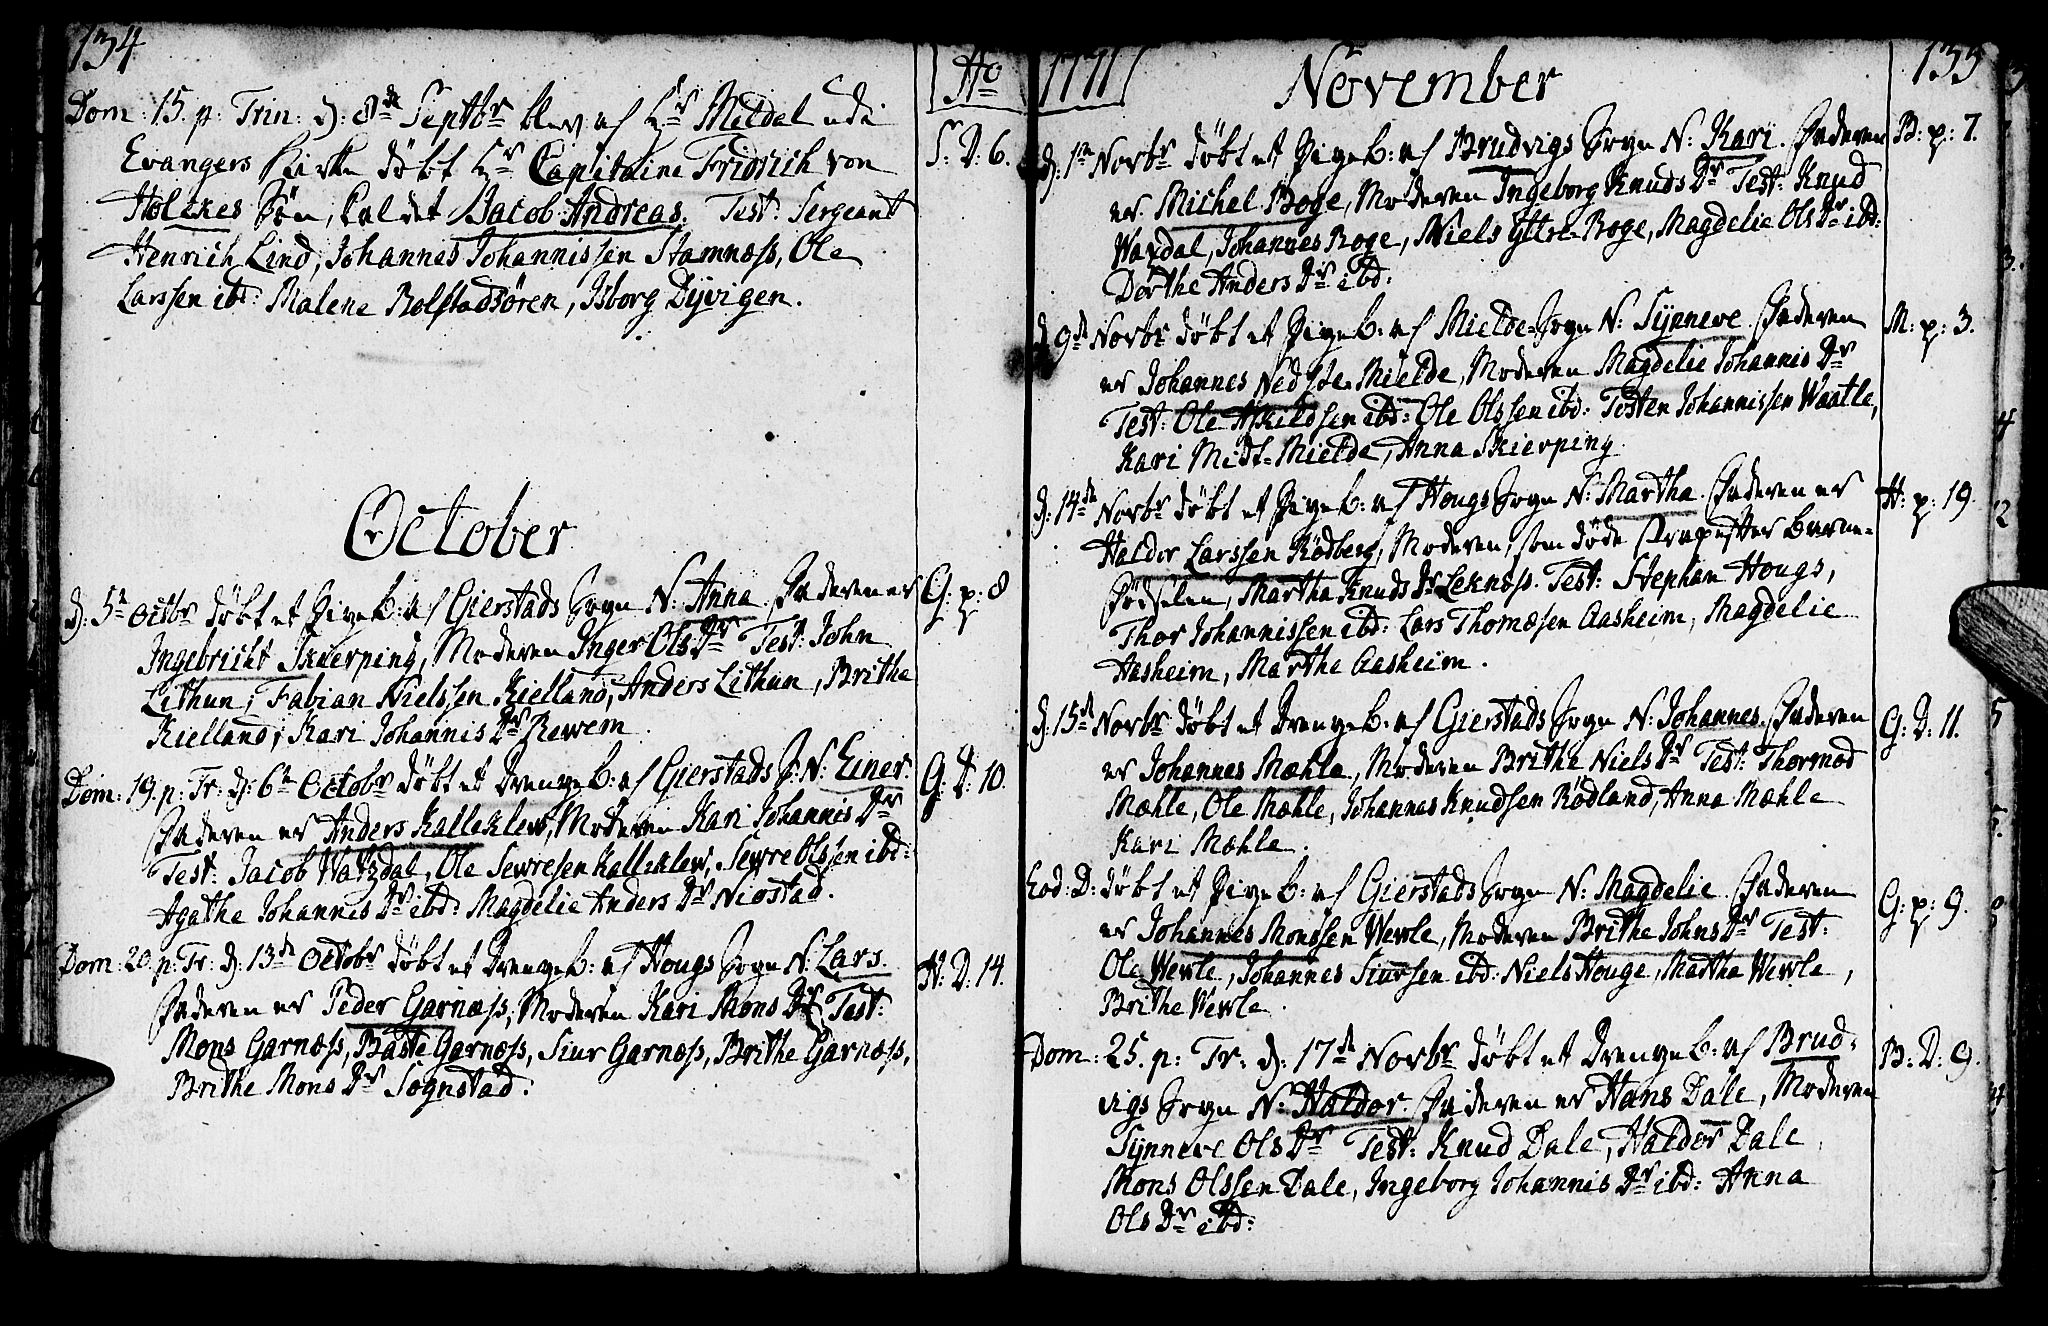 134
Dom: 15. p. Trin: d: 8de Septbr blev af Hr Meldal udi
Evangers Kirke døbt Hr Capitaine Fridrich von
Holckes Søn, kaldet Jacob Andreas. Test: Sergeant
Henrich Lind, Johannes Johannissen Stamnæss, Ole
Larssen ibd: Malene Rolstadsøren, Isborg Dyvigen.
S: D: 6.
October
d: 5te Octbr døbt et Pigeb: af Gierstads Sogn N: Anna. Faderen er
Ingebricht Skierping, Moderen Inger Ols Dr Test: John
Lithun, Fabian Nielssen Kielland, Anders Lithun, Brithe
Kielland, Kari Johannis Dr Rewem.
G: p: 8
Dom: 19. p: Tr: d: 6te Octobr døbt et Drengeb: af Gierstads S: N: Einer.
Faderen er Anders Kalleklew, Moderen Kari Johannis Dr
Test: Jacob Waxdal, Ole Sewresen Kalleklew, Sewre Olssen ibd:
Agathe Johannis Dr ibd: Magdelie Anders Dr Niostad.
G: D: 10.
Dom: 20. p: Tr: d: 13de Octobr døbt et Drengeb: af Hougs Sogn N: Lars.
Faderen er Peder Garnæss, Moderen Kari Mons Dr Test:
Mons Garnæss, Baste Garnæss, Siur Garnæss, Brithe Garnæss,
Brithe Mons Dr Sognstad.
H: D: 14.
Ao 1771
November
135
d: 1te Novbr døbt et Pigeb: af Brudvigs Sogn N: Kari. Faderen
er Michel Boge, Moderen Ingeborg Knuds Dr Test: Knud
Waxdal, Johannes Boge, Niels Yttre-Boge, Magdelie Ols Dr ibd:
Dorthe Anders Dr ibd:
B: p: 7.
d: 9de Novbr døbt et Pigeb: af Mielde-Sogn N: Synneve. Faderen
er Johannes Nedste-Mielde, Moderen Magdelie Johannis Dr
Test: Ole Askildsen ibd: Ole Olssen ibd: Tosten Johannissen Waatle,
Kari Midt-Mielde, Anna Skierping
M: p: 3.
d: 14de Novbr døbt et Pigeb: af Hougs Sogn N: Martha. Faderen er
Haldor Larssen Rødberg, Moderen, som døde strax efter Barne-
Fødselen, Martha Knuds Dr Leknæss. Test: Stephan Hougs,
Thor Johannissen ibd: Lars Thomæsen Aasheim, Magdelie
Aasheim, Marthe Aasheim.
H: p: 19.
d: 15de Novbr døbt et Drengeb: af Gierstads Sogn N: Johannes. Faderen
er Johannes Mæhle, Moderen Brithe Niels Dr Test: Thormod
Mæhle, Ole Mæhle, Johannes Knudsen Rødland, Anna Mæhle
Kari Mæhle.
G: D: 11.
Eod: D: døbt et Pigeb: af Gierstads Sogn N: Magdelie. Faderen
er Johannes Monssen Wewle, Moderen Brithe Johns Dr Test:
Ole Wewle, Johannes Siursen ibd: Niels Houge, Martha Wewle,
Brithe Wewle.
G: p: 9.
Dom: 25. p: Tr: d: 17de Novbr døbt et Drengeb: af Brud-
vigs Sogn N: Haldor. Faderen er Hans Dale, Moderen
Synneve Ols Dr Test: Knud Dale, Haldor Dale,
Mons Olssen Dale, Ingeborg Johannis Dr ibd: Anna
Ols Dr ibd:
B: D: 9.